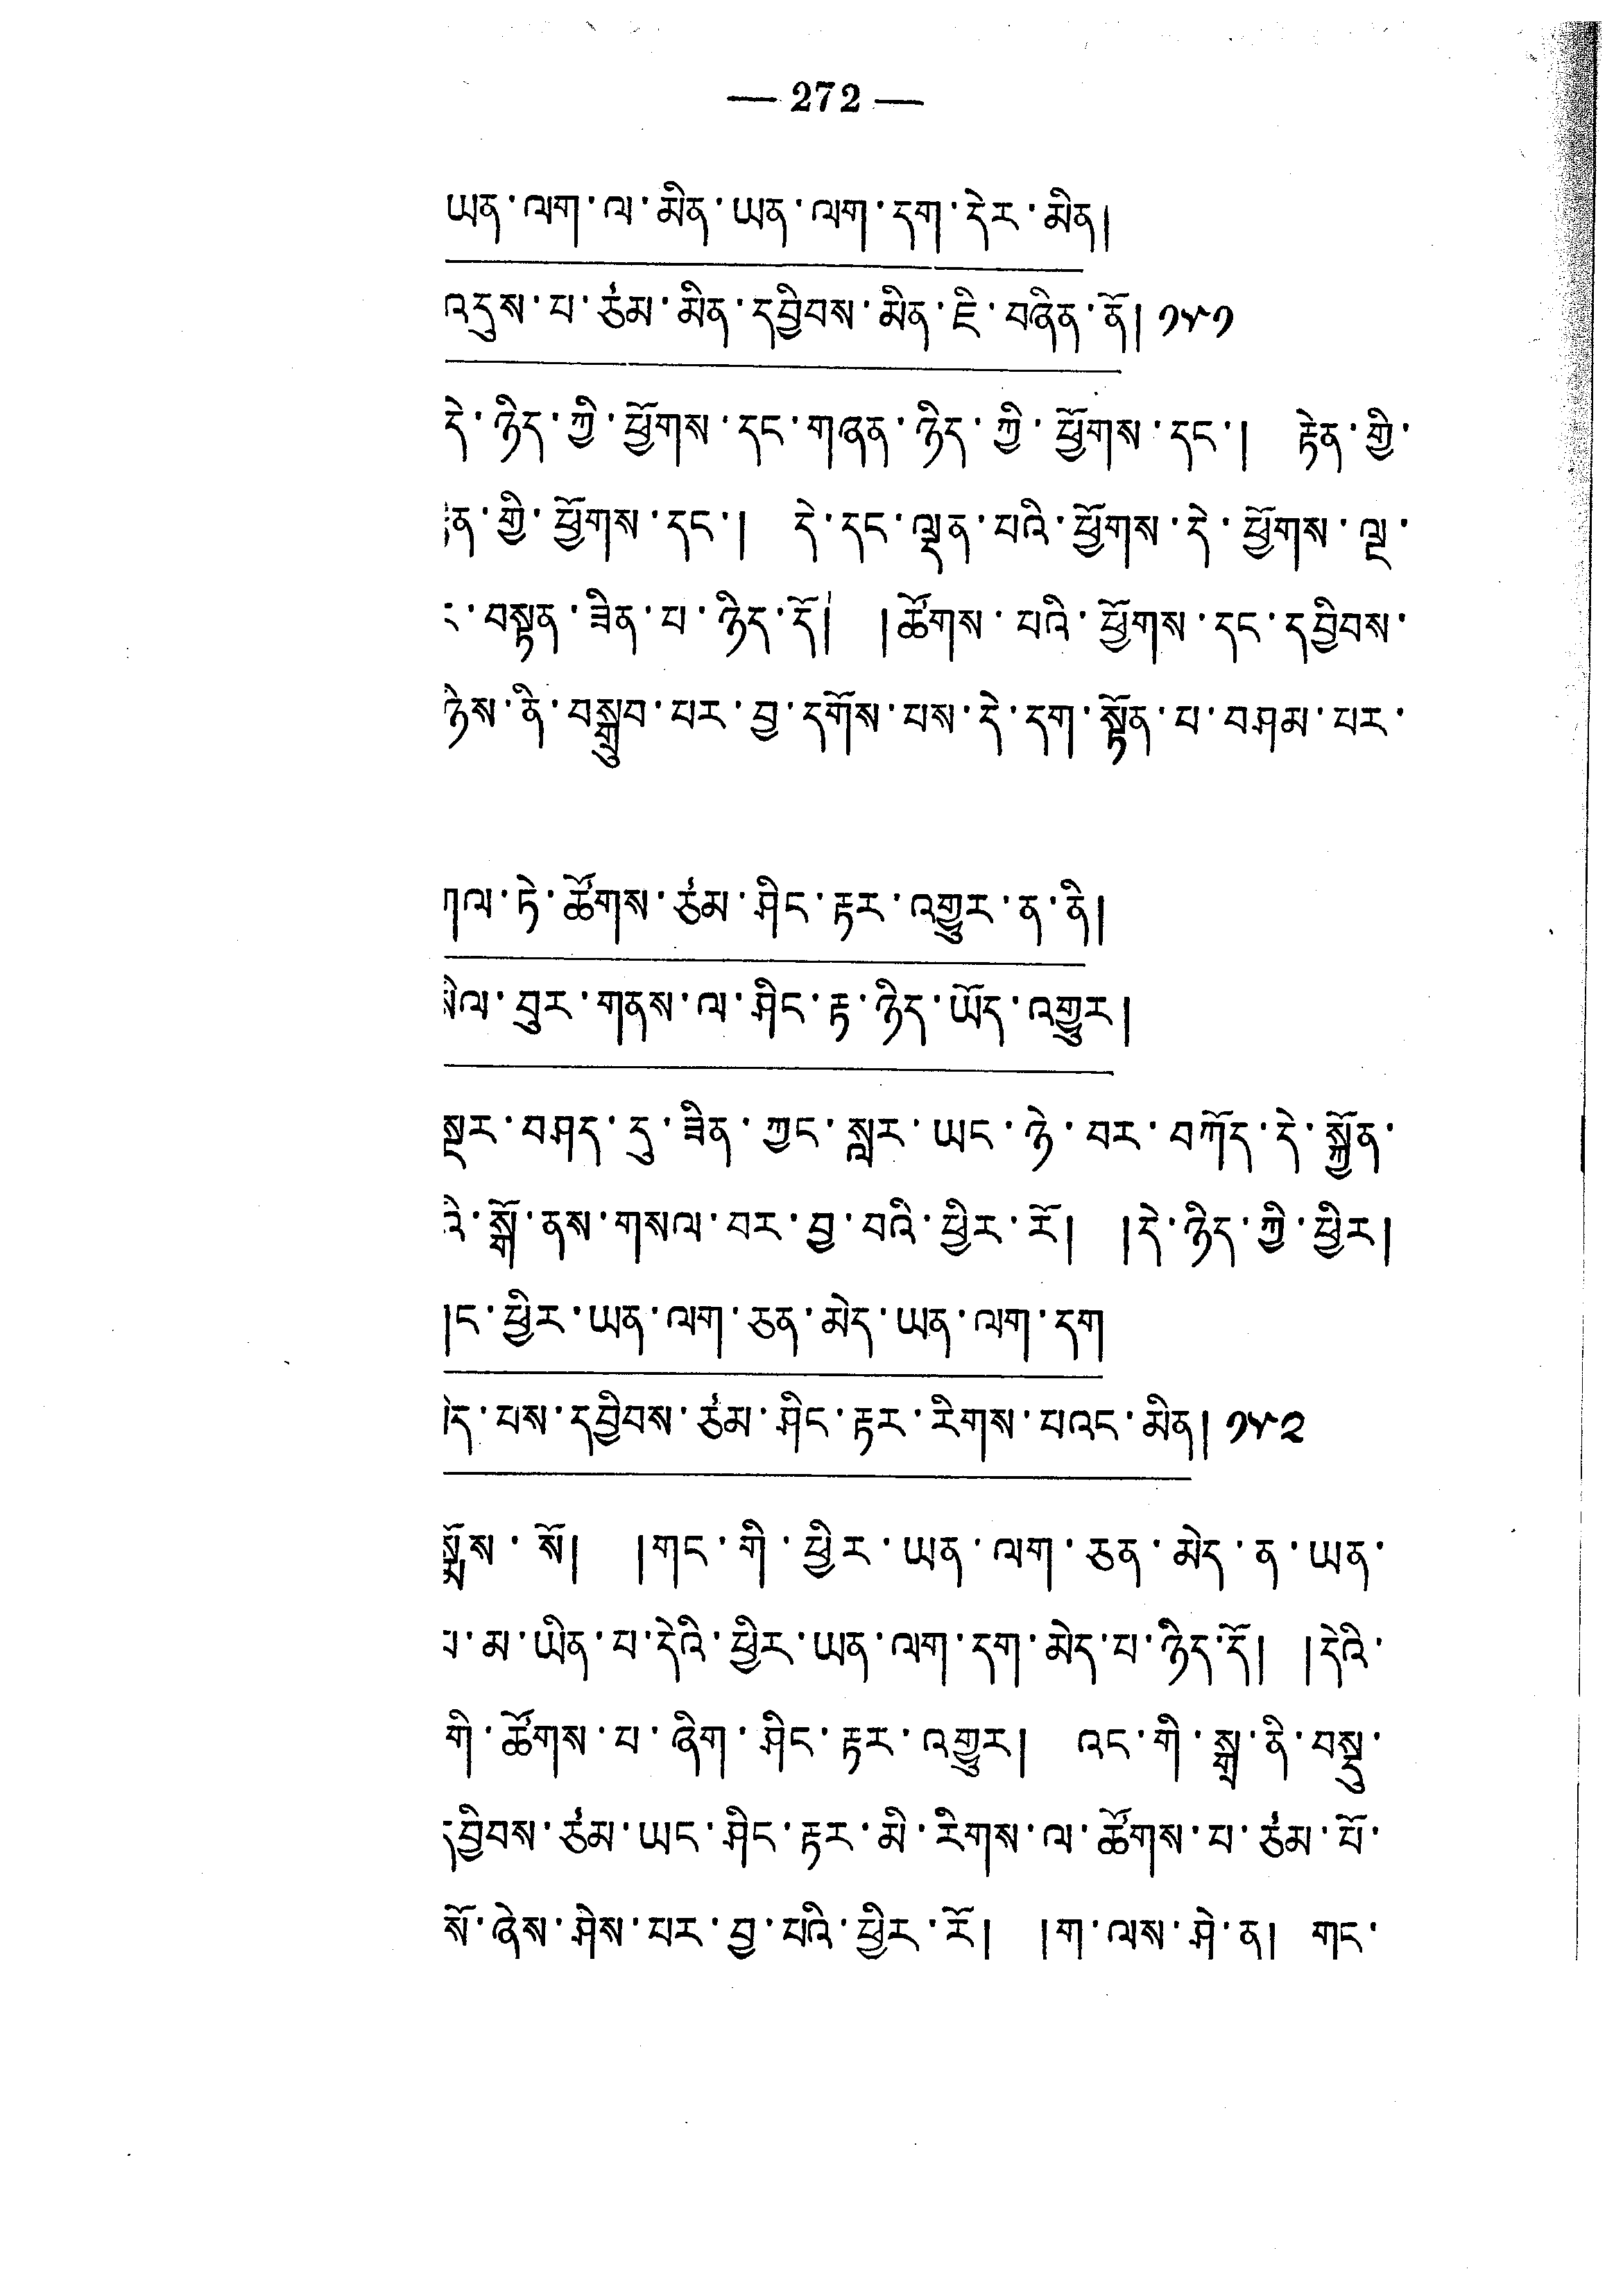 — 272 —
ཡན་ལག་ལ་མིན་ཡན་ལག་དག་དེར་མིན།
འདུས་པ་ཙམ་མིན་དབྱིབས་མིན་ཇི་བཞིན་ནོ། ༡༥༡
དེ་ཉིད་ཀྱི་ཕྱོགས་དང་གཞན་ཉིད་ཀྱི་ཕྱོགས་དང་། རྟེན་གྱི་
གྱི་ཕྱོགས་དང་། དེ་དང་ལྡན་པའི་ཕྱོགས་དེ་ཕྱོགས་ལྔ་
བསྟན་ཟིན་པ་ཉིད་དོ། །ཚོགས་པའི་ཕྱོགས་དང་དབྱིབས་
ཉིས་ནི་བསྒྲུབ་པར་བྱ་དགོས་པས་དེ་དག་སྟོན་པ་བཤམ་པར་
ཏེ་ཚོགས་ཙམ་ཤིང་རྟར་འགྱུར་ན་ནི།
བུར་གནས་ལ་ཤིང་རྟ་ཉིད་ཡོད་འགྱུར།
སྔར་བཤད་དུ་ཟིན་ཀྱང་སླར་ཡང་ཉེ་བར་བཀོད་དེ་སྐྱོན་
སྒོ་ནས་གསལ་བར་བྱ་བའི་ཕྱིར་རོ། །དེ་ཉིད་ཀྱི་ཕྱིར།
ཕྱིར་ཡན་ལག་ཅན་མེད་ཡན་ལག་དག
པས་དབྱིབས་ཙམ་ཤིང་རྟར་རིགས་པའང་མིན། ༡༥༢
སྨྲོས་སོ། །གང་གི་ཕྱིར་ཡན་ལག་ཅན་མེད་ན་ཡན་
མ་ཡིན་པ་དེའི་ཕྱིར་ཡན་ལག་དག་མེད་པ་ཉིད་དོ། །དེའི་
གི་ཚོགས་པ་ཞིག་ཤིང་རྟར་འགྱུར། འང་གི་སྒྲ་ནི་བསྡུ་
དབྱིབས་ཙམ་ཡང་ཤིང་རྟར་མི་རིགས་ལ་ཚོགས་པ་ཙམ་པོ་
སོ་ཞེས་ཤེས་པར་བྱ་པའི་ཕྱིར་རོ། །ག་ལས་ཤེ་ན། གང་